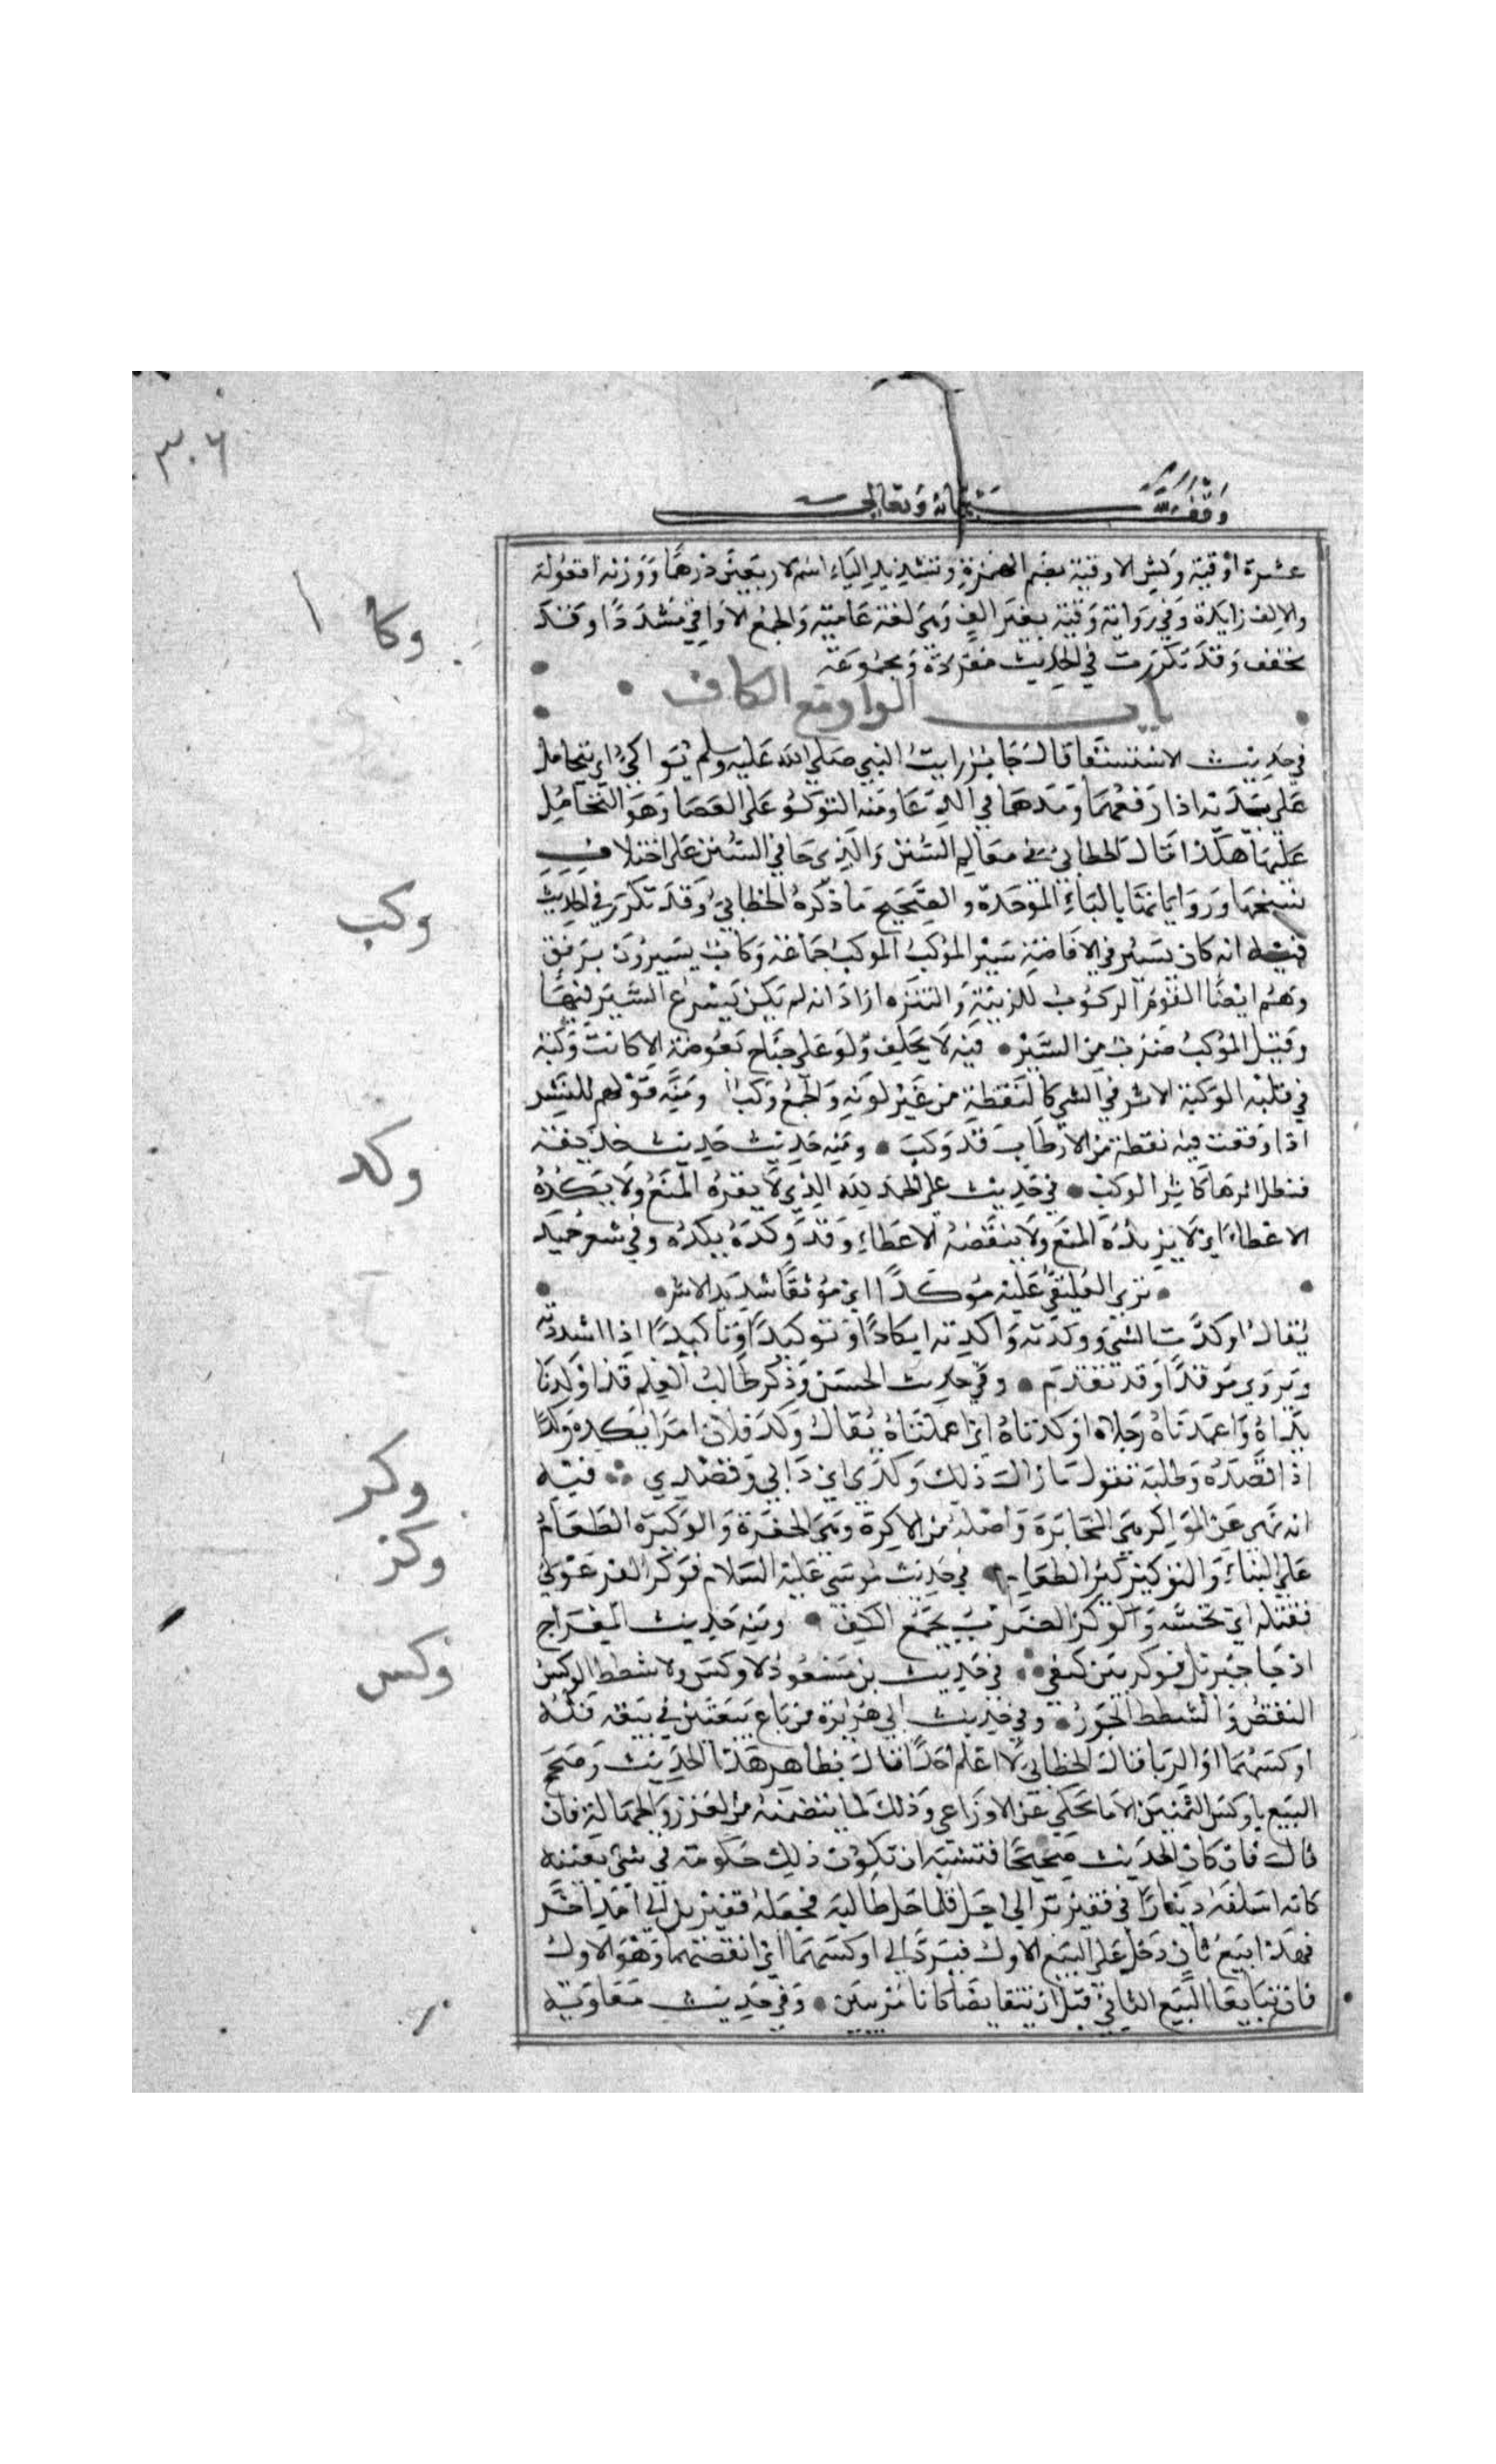 ٣٠٦
وقف لله سبحانه وتعالى
عشرة اوقية ونش الاوقية بضم الهمزة وتشديد الياء اسم لاربعين درهما ووزنه افعولة
والالف زايدة وفي رواية وقية بغير الف وهي لغة عامية والجمع الاواقي مشددا وقد
يخفف وقد تكررت في الحديث مفردة ومجموعة
باب الواو مع الكاف
وكا
في حديث الاستسقا قال جابر رايت النبي صلي الله عليه وسلم يواكئ اي يتحامل
علي يديه اذا رفعهما ومدهما في الدعا ومنه التوكؤ على العصا وهو التحامل
عليها هكذا قال الخطابي في معالم السنن والذي جا في السنن على اختلاف
نسخها ورواياتها بالباء الموحدة والصحيح ما ذكره الخطابي وقد تكرر في الحديث
وكب
فيه انه كان يسير في الافاضة سير الموكب الموكب جماعة وكاب يسيرون برفق
وهم ايضا القوم الركوب للزينة والتنزه اراد انه لم يكن يسرع السير فيها
وقيل الموكب ضرب من السير فيه لا يحلف ولو على جناح بعوضة الا كانت وكتة
في قلبه الوكتة الاثر في الشي كالنقطة من غير لونه والجمع وكب ومنه قولهم للبسر
اذا وقعت فيه نقطة من الارطاب قد وكب ومنه حديث حديث حذيفة
فيظل اثرها كاثر الوكب في حديث علي الحمد لله الذي لا يفره المنع ولا يكده
وكد
الاعطاء اي لا يزيده المنع ولا ينقصه الاعطاء وقد وكده يكده وفي شعر حميد
تري العليفي عليه موكدا اي موثقا شديد الاسر
يقال اوكدت الشي ووكدته واكدته ايكادا وتوكيدا وتاكيدا اذا شددته
ويروي موفدا وقد تقدم وفي حديث الحسن وذكر طالب العلم قد اوكدتا
يداه واعمدتاه رجلاه اوكدتاه اي اعملتاه يقال وكد فلان امرا يكده وكدا
اذا قصده وطلبه تقول ما زال ذلك وكدي اي دابي وقصدي فيه
وكر
انه نهي عن المواكرة هي المخابرة واصله من الاكرة وهي الحفرة والوكيرة الطعام
علي البناء والتوكير الطعام في حديث موسي عليه السلام فوكز الفرعوني
وكز
فقتله اي نخسه والوكز الضرب بجمع الكف ومنه حديث المعراج
اذ جا جبريل فوكز بين كتفي في حديث بن مسعود لا وكس ولا شطط الوكس
وكس
النقص والشطط الجور وفي حديث ابي هريرة من باع بيعتين في بيعة فله
اوكسهما او الربا قال الخطابي لا اعلم احدا قال بظاهر هذا الحديث وصحح
البيع باوكس الثمنين الا ما يحكي عن الاوزاعي وذلك لما يتضمنه من الغرر والجهالة فان
قال فان كان الحديث صحيحا فتشبه ان تكون ذلك حكومة في شي بعينه
كانه اسلفه دينارا في قفيز بر الي اجل فلما حل طالبه فجعله قفيزين الي امد اخر
فهذا بيع ثان دخل على البيع الاول فيرد الي اوكسهما اي انقصهما وهو الاول
فان تبايعا البيع الثاني قبل ان يتقابضا كانا مربيين وفي حديث معاوية